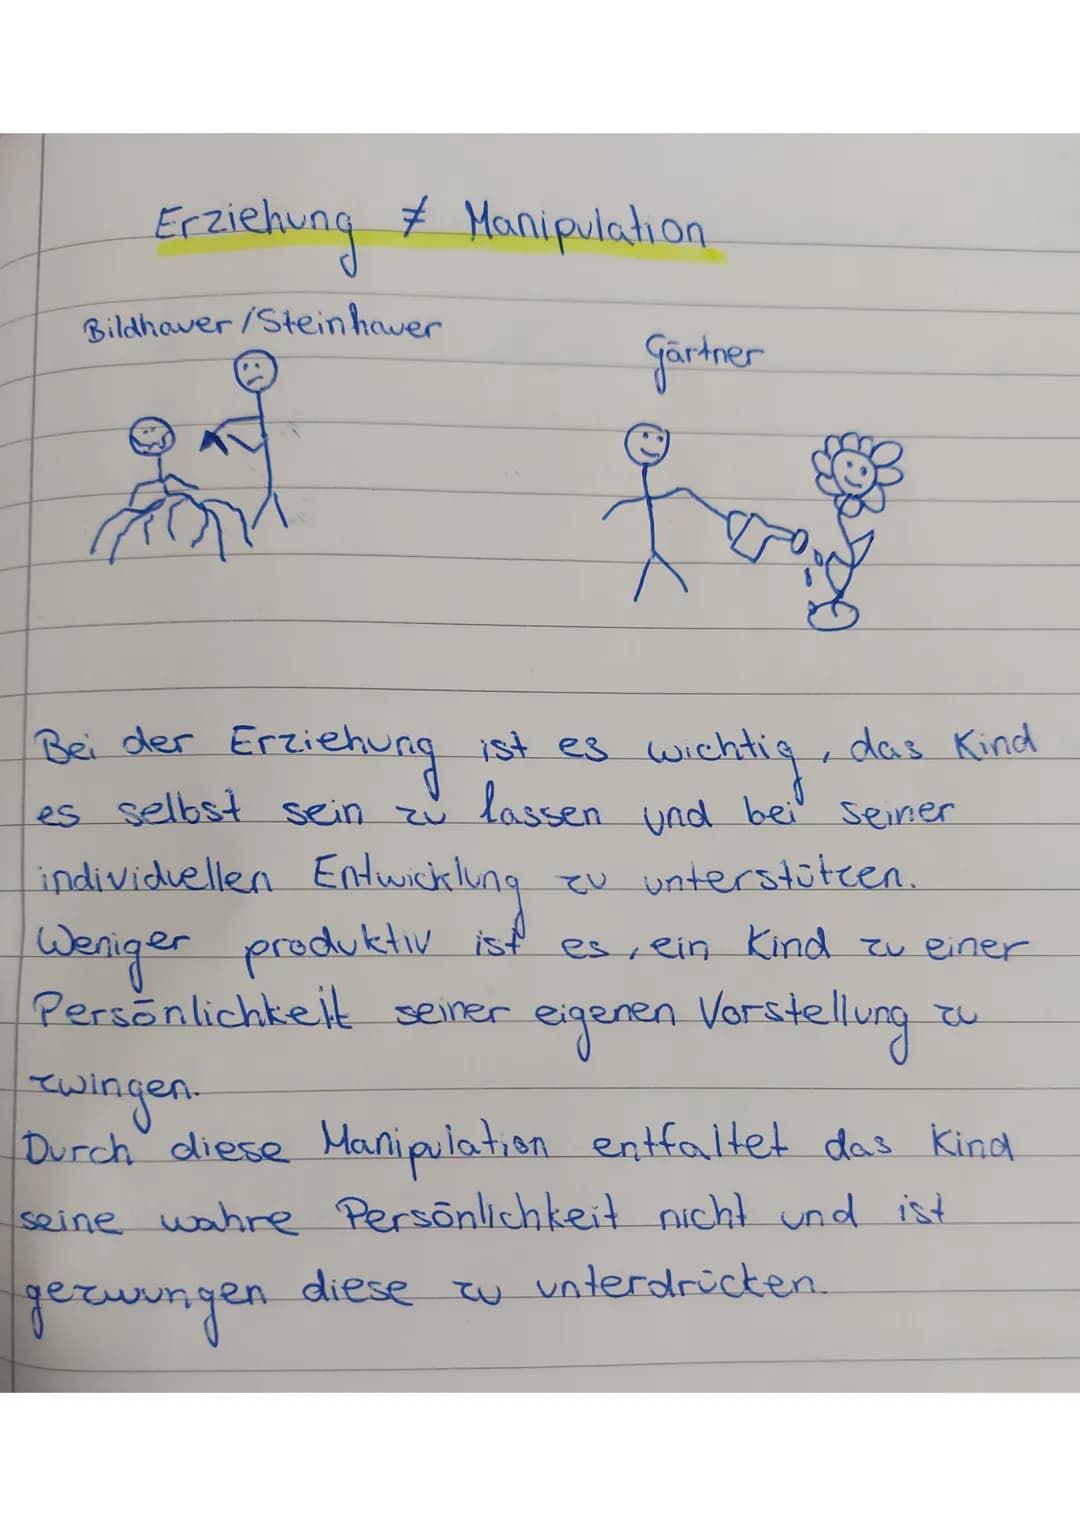 Erziehung ≠ Manipulation
Bildhauer/Steinhauer
Gärtner
Bei der Erziehung ist es wichtig, das Kind
es selbst sein zu lassen und bei seiner
individuellen Entwicklung zu unterstützen.
Weniger produktiv ist es, ein Kind zu einer
Persönlichkeit seiner eigenen Vorstellung zu
zwingen.
Durch diese Manipulation entfaltet das Kind
seine wahre Persönlichkeit nicht und ist
gezwungen diese zu unterdrücken.